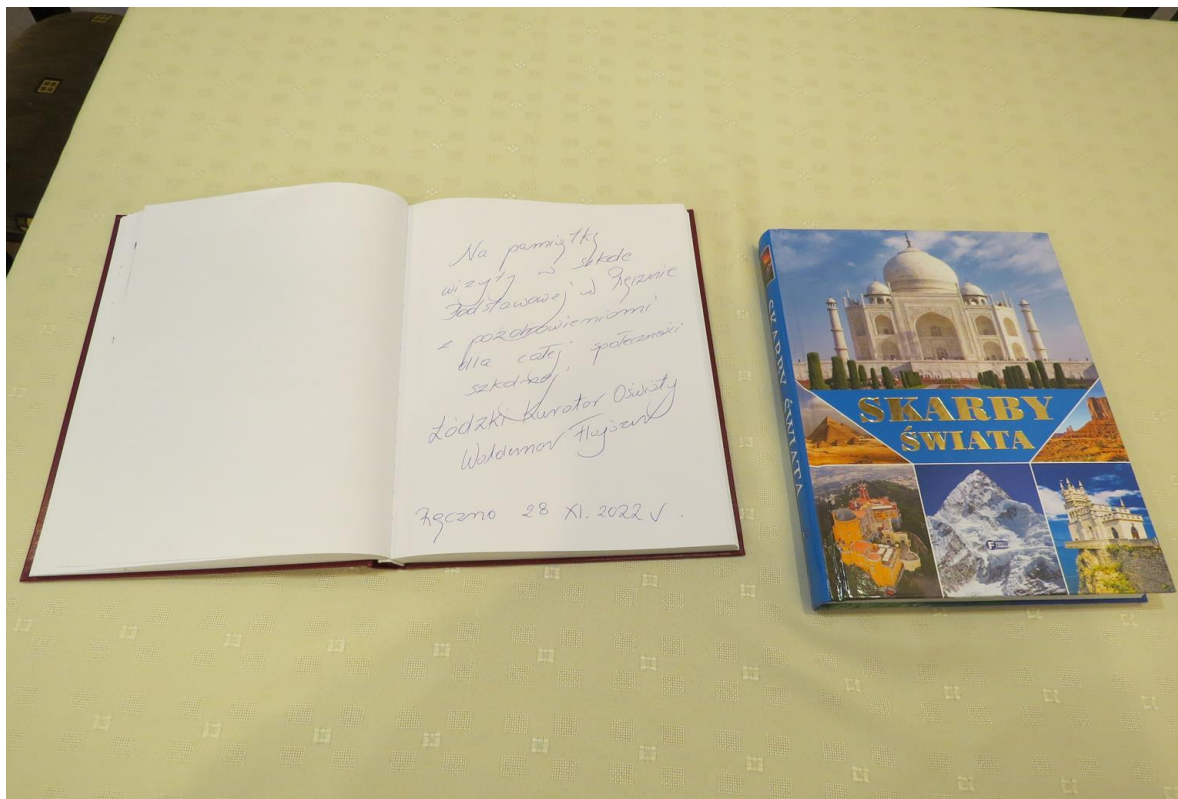 Na pamiątkę
wizyty w szkole
Podstawowej w Ręcznie
z pozdrowieniami
dla całej społeczności
szkolnej
Łódzki Kurator Oświaty
Waldemar Flajszer
Ręczno 28 XI. 2022 r.
SKARBY ŚWIATA
SKARBY
ŚWIATA